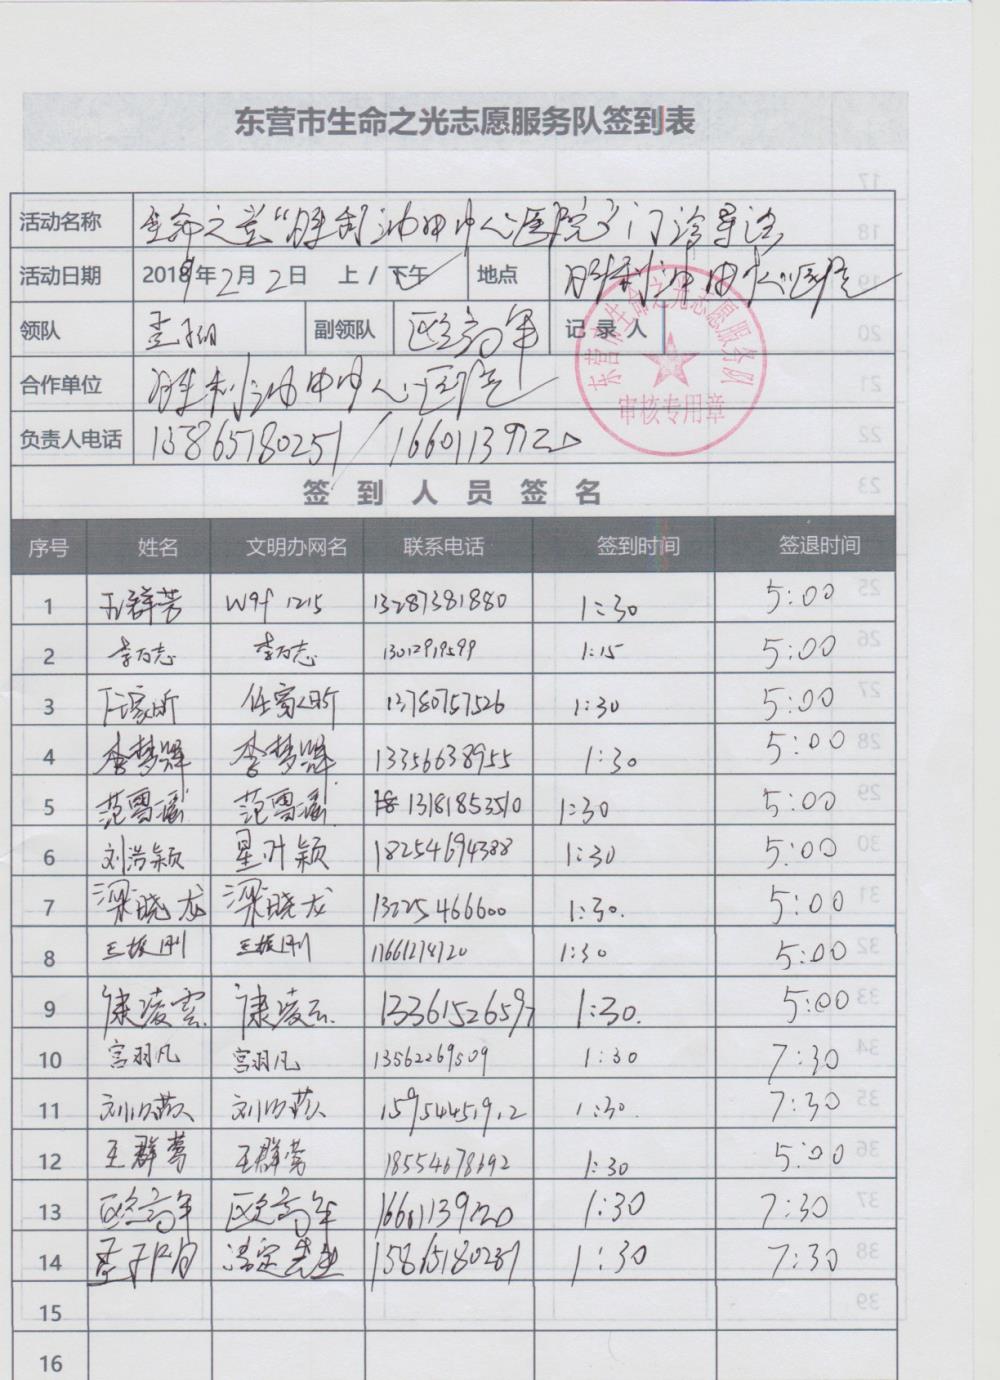 东营市生命之光志愿服务队签到表
活动名称 生命之光“胜利油田中心医院”门诊导诊
活动日期 2019年2月2日 上/下午 地点 胜利油田中心医院
领队 副领队 欧高年 记录人
东营市生命之光志愿服务队
审核专用章
合作单位 胜利油田中心医院
负责人电话 15865180251 / 16601139120
签到人员签名
序号 姓名 文明办网名 联系电话 签到时间 签退时间
1 王群芳 wqf 1215 13287381880 1:30 5:00
2 李万志 李万志 13012919599 1:15 5:00
3 任家昕 任家昕 13780757526 1:30 5:00
4 李梦辉 李梦辉 13356638955 1:30 5:00
5 范雪瑶 范雪瑶 13181853510 1:30 5:00
6 刘浩颖 星叶颖 18254694388 1:30 5:00
7 梁晓龙 梁晓龙 13225466600 1:30. 5:00
8 王振刚 王振刚 17661278720 1:30 5:00
9 康凌雲. 康凌云. 13361526597 1:30. 5:00
10 宫羽凡 宫羽凡 13562269509 1:30 7:30
11 15954451912 1:30. 7:30
12 王群莺 王群莺 18554678692 1:30 5:00
13 欧高年 欧高年 16601139120 1:30 7:30
14 15865180251 1:30 7:30
15
16